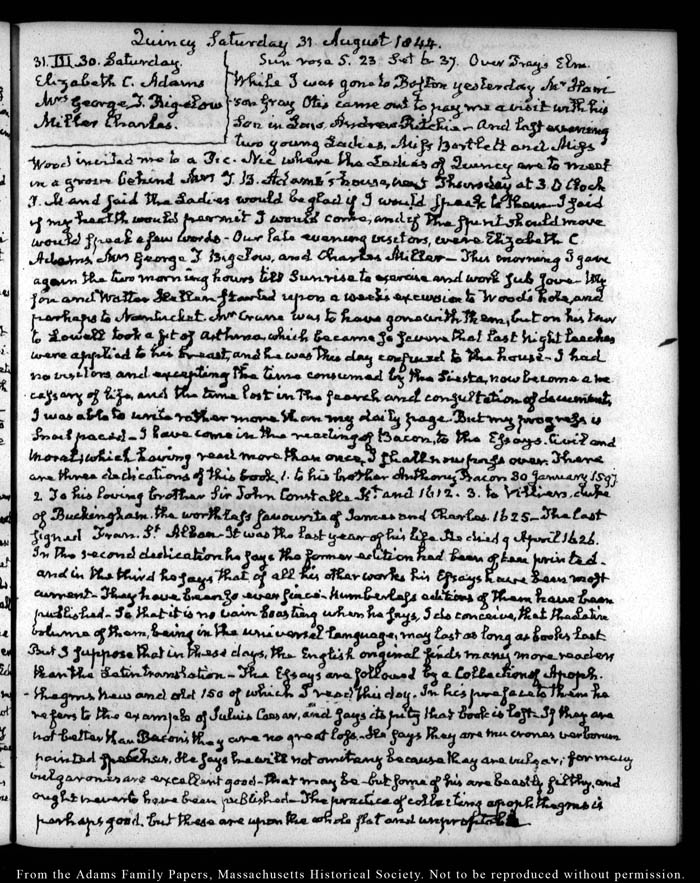 Quincy Saturday 31 August 1844.
31. III. 30. Saturday. Sun rose 5. 23 Set 6 37. Over Frays Elm.
Elizabeth C. Adams
Mrs George T. Bigelow
Miller Charles.
While I was gone to Boston yesterday Mr Harri-
son Gray Otis came out to pay me a visit with his
Son in Law, Andrew Ritchie. And last evening
two young Ladies, Miss Bartlett and Miss
Wood invited me to a Pic. Nic where the Ladies of Quincy are to meet
in a grove behind Mrs T. B. Adams's house, next Thursday at 3. O Clock
P. M and said the Ladies would be glad if I would speak to them. I said
if my health would permit I would come, and if the Spirit should move
would speak a few words. Our late evening visitors, were Elizabeth C
Adams, Mrs George T Bigelow, and Charles Miller. This morning I gave
again the two morning hours till Sunrise to exercise and work sub Jove. My
son and Walter Hellen started upon a weeks excursion to Woods hole, and
perhaps to Nantucket. Mr Crane was to have gone with them, but on his tour
to Lowell took a fit of Asthma, which became so severe that last Night leeches
were applied to his breast, and he was this day confined to the house. I had
no visitors and excepting the time consumed by the Siesta, now become a ne-
cessary of life, and the time lost in the search and consultation of documents,
I was able to write rather more than my daily page. But my progress is
Snail paced. I have come in the reading of Bacon, to the Essays. Civil and
Moral, which having read more than once, I shall now pass over. There
are three dedications of this book, 1. to his brother Anthony Bacon 30 January 1597
2. To his loving brother Sir John Constable Kt. and 1612. 3. to Villiers, duke
of Buckingham. the worthless favourite of James and Charles. 1625. The last
signed Fran. St. Alban. It was the last year of his life. He died 9 April 1626.
In the second dedication he says the former edition had been often printed.
and in the third he says that of all his other works his Essays have been most
current. They have been so ever since. Numberless editions of them have been
published. So that it is no vain boasting when he says, I do conceive, that the Latin
volume of them, being in the universal language, may last as long as books last
But I suppose that in these days, the English original finds many more readers
than the Latin translation. The Essays are followed by a Collection of Apoph-
thegms New and old 150 of which I read this day. In his preface to them he
refers to the example of Julius Caesar, and says its pity that book is lost. If they are
not better than Bacon's they are no great loss. He says they are mucrones verborum
pointed Speeches. He says he will not omit any because they are vulgar; for many
vulgar ones are excellent good. that may be. but some of his are beastly filthy, and
ought never to have been published. The practice of collecting apophthegms is
perhaps good. but these are upon the whole flat and unprofitable
From the Adams Family Papers, Massachusetts Historical Society. Not to be reproduced without permission.